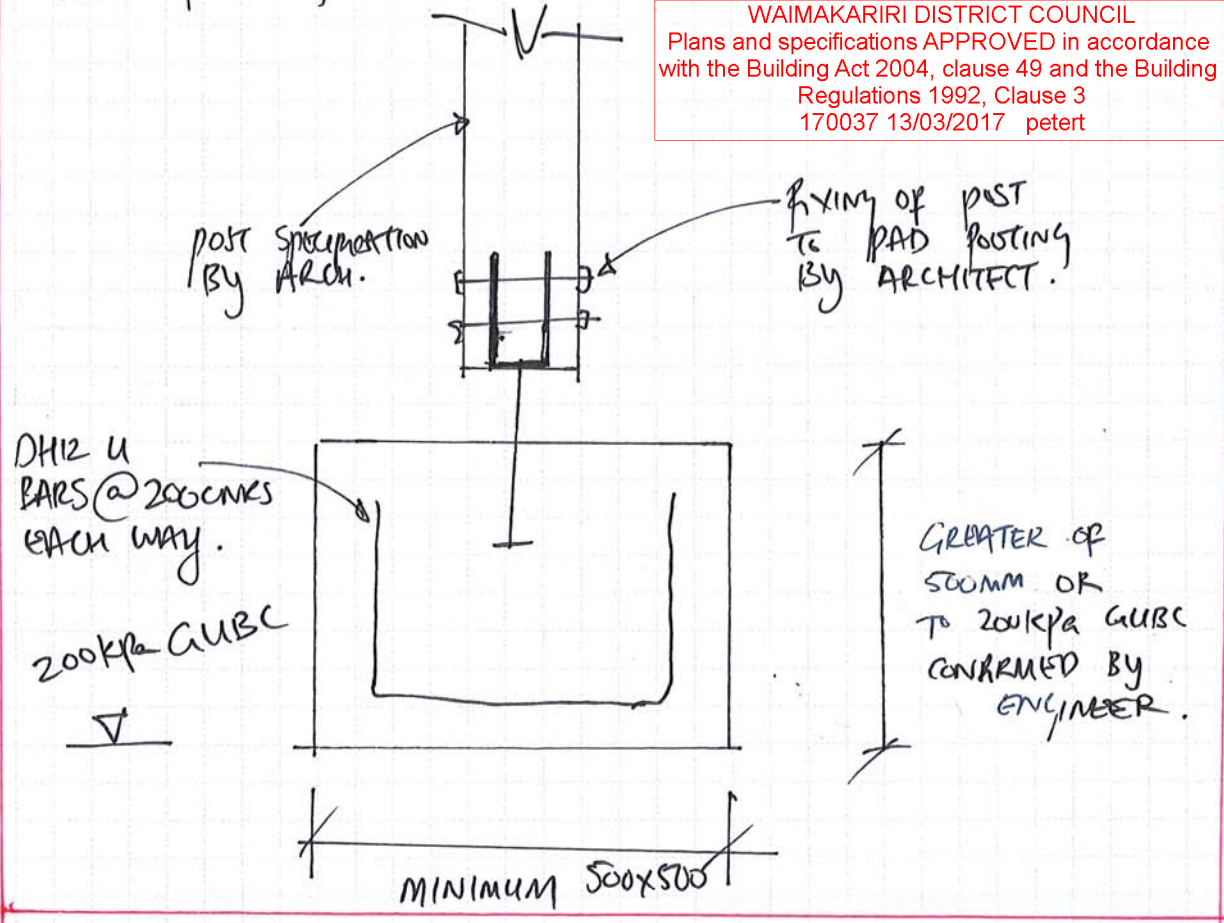 WAIMAKARIRI DISTRICT COUNCIL
Plans and specifications APPROVED in accordance
with the Building Act 2004, clause 49 and the Building
Regulations 1992, Clause 3
170037 13/03/2017 petert
POST SPECIFICATION
BY ARCH.
FIXING OF POST
TO PAD FOOTING
BY ARCHITECT.
DH12 U
BARS @ 200CNRS
EACH WAY.
200kPa GUBC
GREATER OF
500MM OR
TO 200kPa GUBC
CONFIRMED BY
ENGINEER.
MINIMUM 500x500